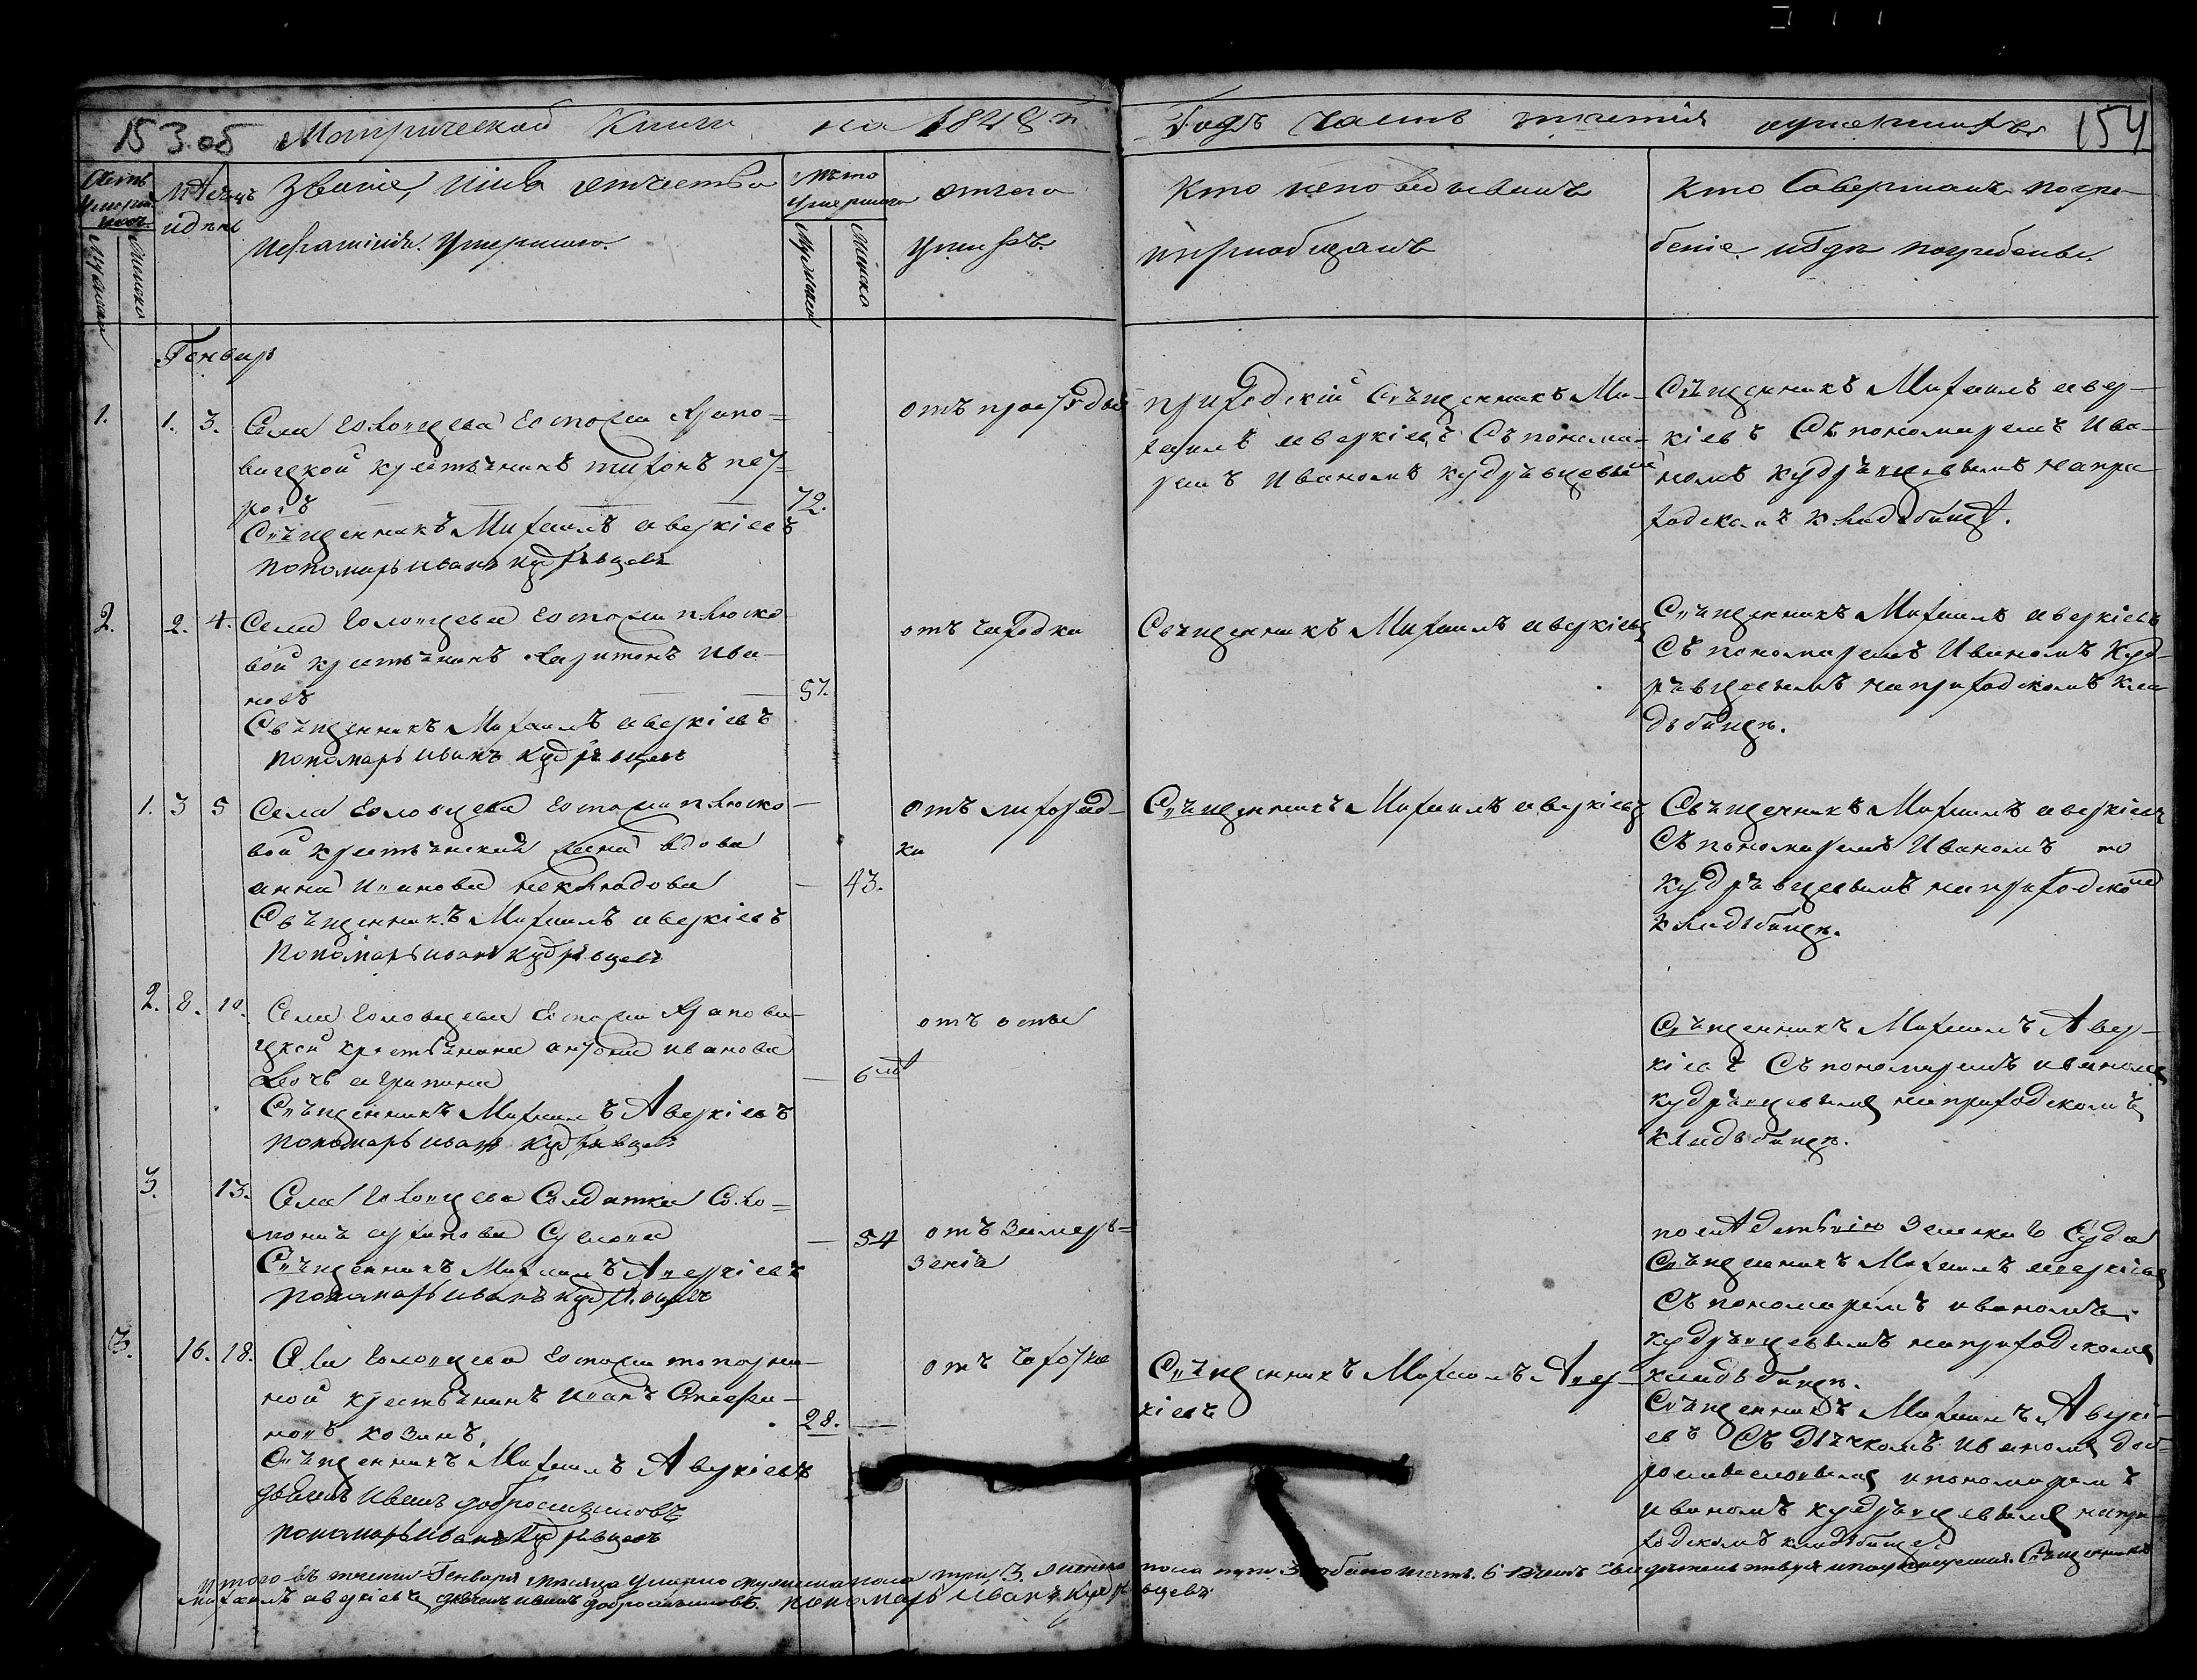 153.об Метрической Книги на 1848й Годъ Часть третия оумершихъ 154
Счетъ умерших.
Мужеска
Женска
Мѣсяцъ и день
Званіе, имя отчество
и фамилия умершаго.
Лѣто умершаго
Мужеска
Женска
отчего умиръ.
Кто исповѣдывалъ
и пріобщалъ
Кто Совершалъ погре-
бение и гдѣ погребены.
Генварь
1. 1. 3. Села Головцева Господи Храпо-
вицкой крестьянинъ тихонъ пет-
ровъ 72.
Священникъ Михаилъ аверкіевъ
пономарь иванъ кудрявцевъ
отъ простуды
приходскій Священникъ Ми-
хаилъ аверкіевъ Съ понома-
ремъ Иваномъ кудрявцевымъ
Священникъ Михаилъ авер-
кіевъ Съ пономаремъ Ива-
номъ кудрявцевымъ на при-
ходскомъ кладбищѣ.
2. 2. 4. Села Головцева Господи плюско
вой крестьянинъ харитонъ ива-
новъ 57.
Священникъ Михаилъ аверкіевъ
пономарь иванъ кудрявцевъ
отъ чаходки
Священникъ Михаилъ аверкіевъ
Священникъ Михаилъ аверкіевъ
Съ пономаремъ Иваномъ Куд-
рявцевымъ на приходскомъ кла
дьбищѣ.
1. 3 5 Села Головцева Господи плюско
вой крестьянская жена вдова
анна Иванова
43.
Священникъ Михаилъ аверкіевъ
пономарь иванъ кудрявцевъ
отъ лихорад-
ки
Священникъ Михаилъ аверкіевъ
Священникъ Михаилъ аверкіевъ
Съ пономаремъ Иваномъ
кудрявцевымъ на приходско
кладьбищѣ.
2. 8. 10. Села Головцева Господи Храпови-
цкой крестьянина иванова
дочь агрипина
6
Священникъ Михаилъ Аверкіевъ
пономарь иванъ кудрявцевъ
отъ оспы
Священникъ Михаилъ Авер-
кіевъ Съ пономаремъ иваномъ
кудрявцевымъ на приходскомъ
кладьбищѣ.
3. 13. Села Головцева Солдатка Соло-
54
Священникъ Михаилъ Аверкіевъ
пономарь иванъ кудрявцевъ
отъ замерз-
зенія
Земскаго Суда
Священникъ Михаилъ аверкіевъ
Съ пономаремъ иваномъ
кудрявцевымъ на приходскомъ
кладьбищѣ.
3. 16. 18. Села Головцева Господи топорни-
ной крестьянинъ иванъ Стефа-
новъ козинъ. 28.
Священникъ Михаилъ Аверкіевъ
дьячекъ Иванъ добросмысловъ
пономарь иванъ кудрявцевъ
отъ
Священникъ Михаилъ Авер-
кіевъ
Священникъ Михаилъ Аверкі-
евъ Съ Дьячкомъ иваномъ доб-
росмысловымъ и пономаремъ
иваномъ кудрявцевымъ на при-
ходскомъ кладьбище
итого въ течении Генваря месяца умерло мужеска пола три 3, женска пола три 3 обоего шесть. 6 въ чемъ свидѣтельствуя и подписуемся. Священникъ
Михаилъ аверкіевъ, дьячекъ иванъ добросмысловъ. пономарь иванъ кудрявцевъ